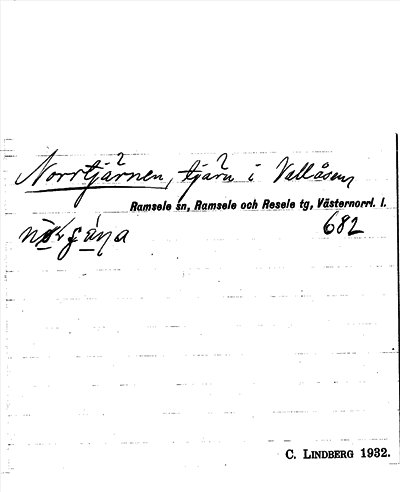 Norrtjärnen, tjärn i Vallåsen
Ramsele sn, Ramsele och Resele tg, Västernorrl. l.
682
C. LINDBERG 1932.